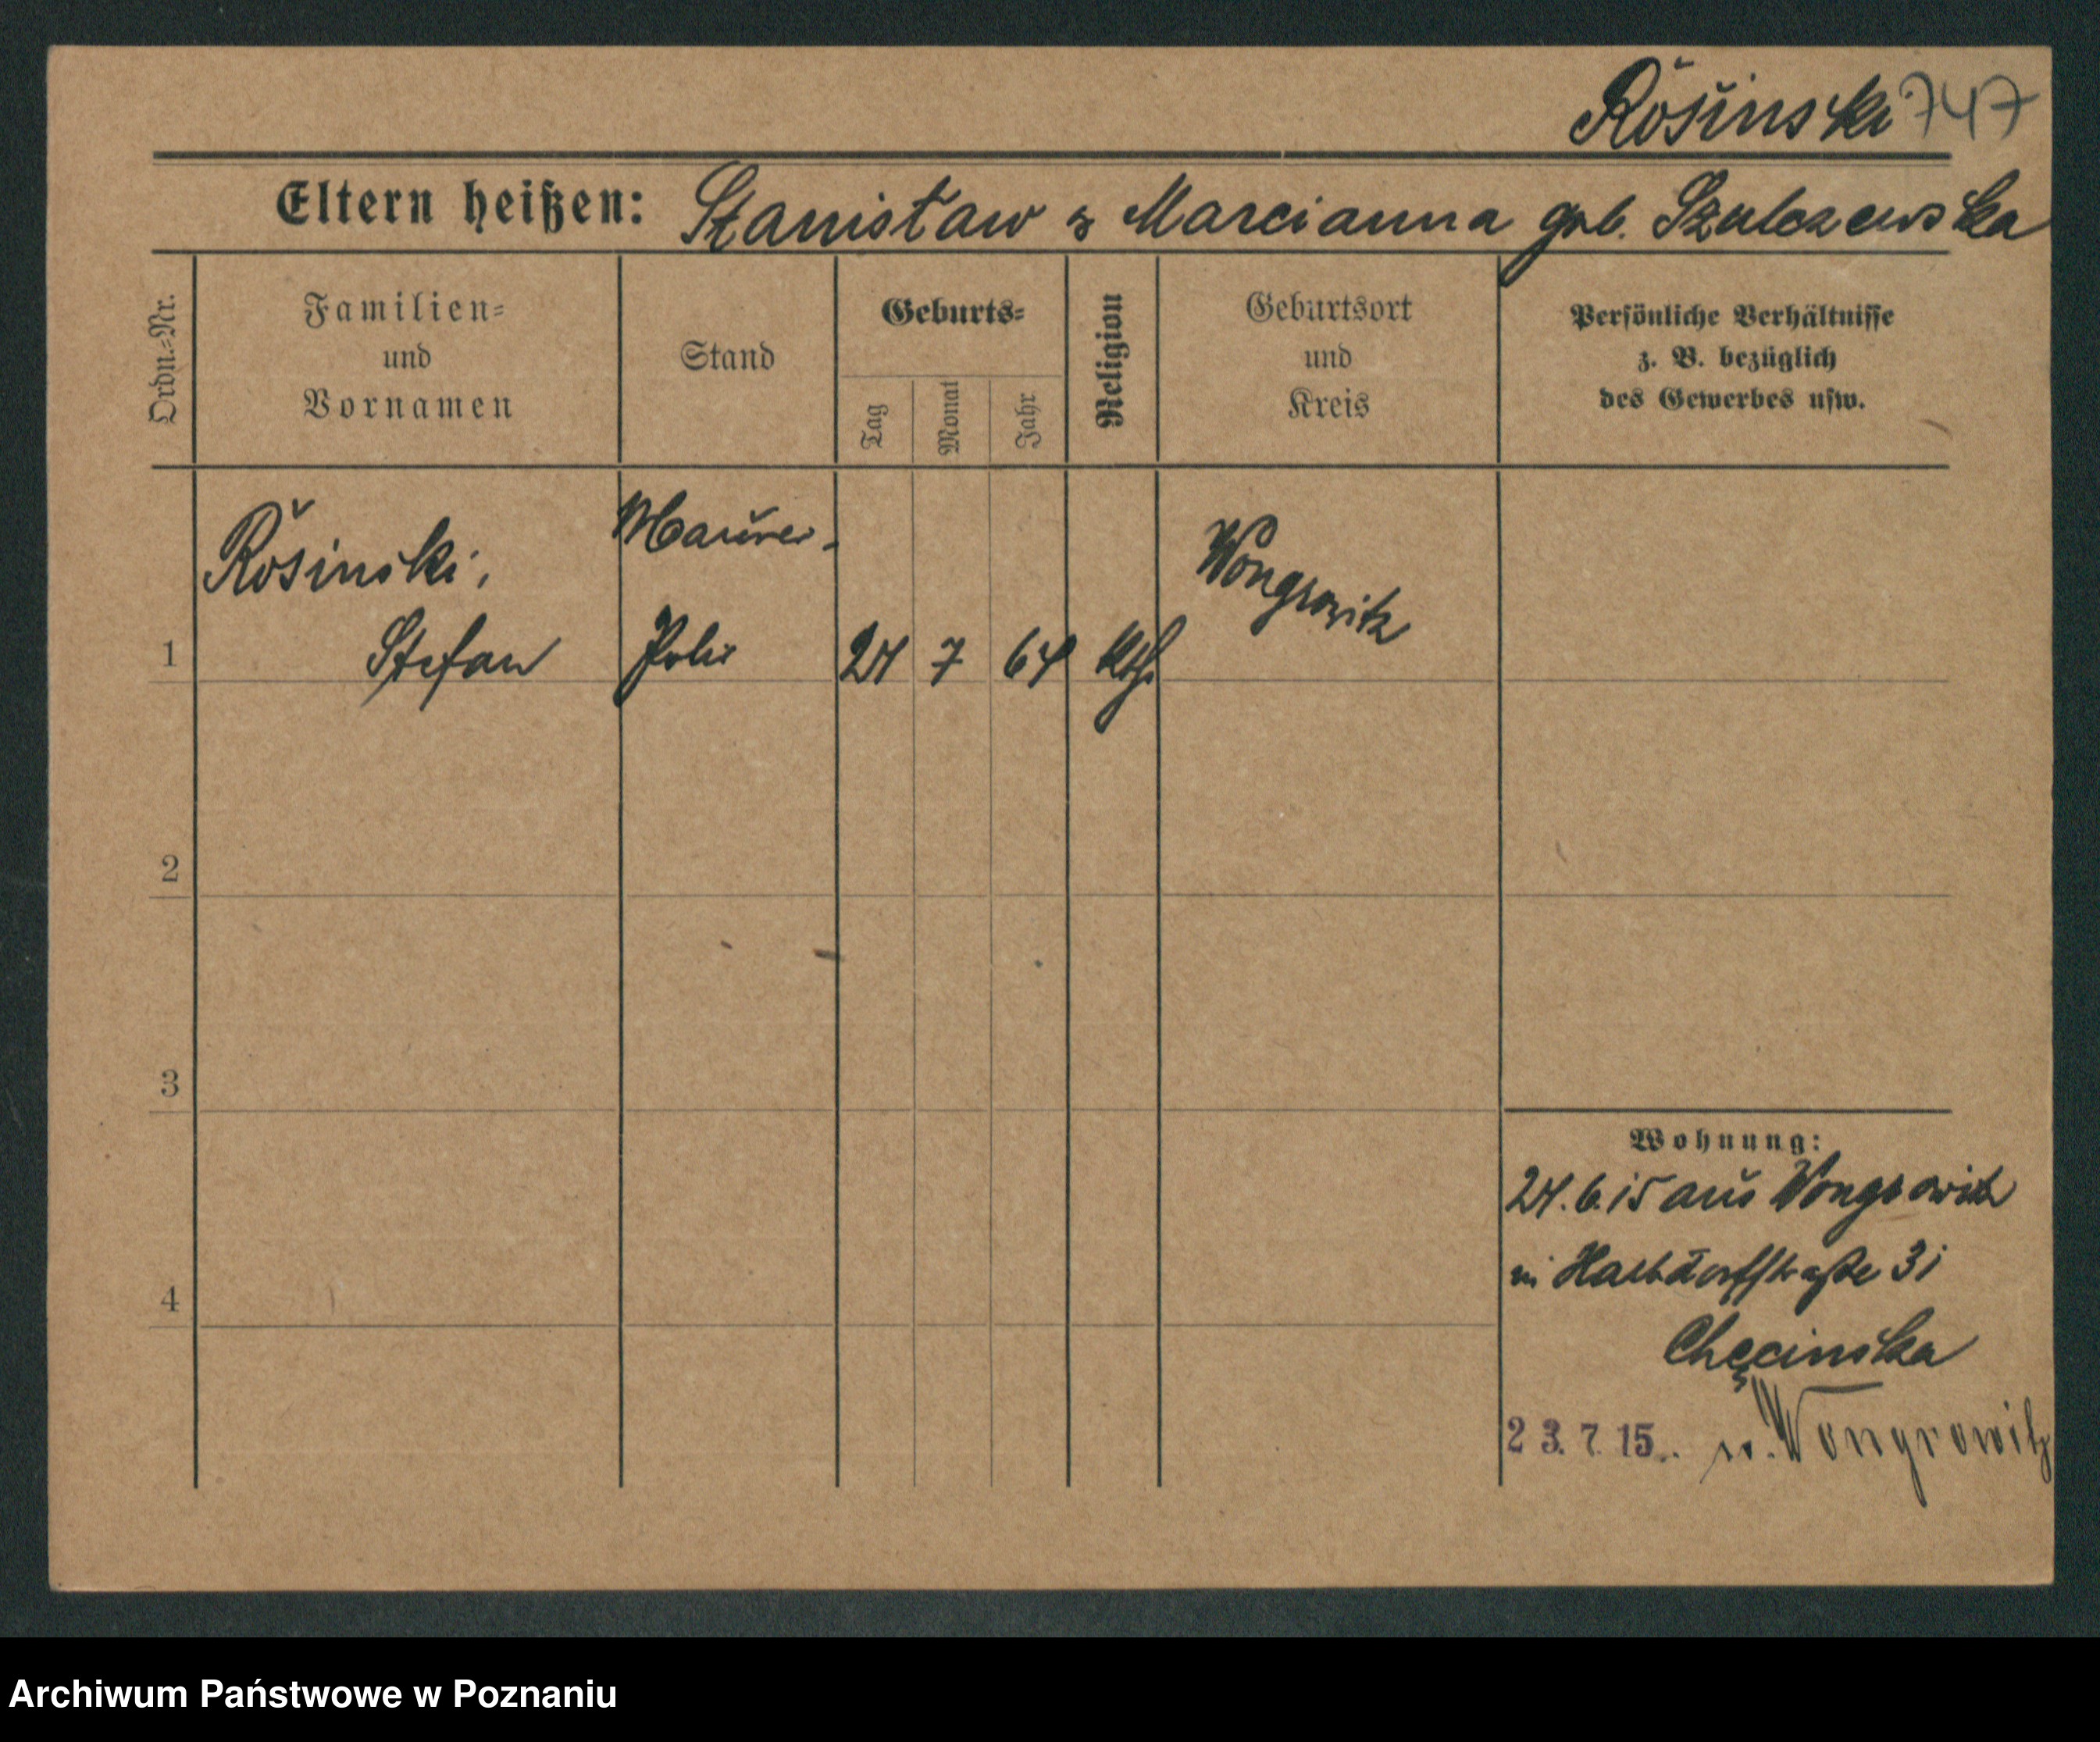 Rośinski 747
Eltern heißen: Stanisław & Marcianna geb. Szulczewska
Ordn.-Nr.
Familien-
und
Vornamen
Stand
Geburts-
Tag
Monat
Jahr
Religion
Geburtsort
und
Kreis
Persönliche Verhältnisse
z. B. bezüglich
des Gewerbes usw.
Rośinski,
Maurer-
Wongrowitz
1 Stefan Polir 24 7 64 kth.
2
3
4
Wohnung:
24.6.15 aus Wongrowitz
in Halbdorfstraße 31
Chęcinska
23.7.15. n. Wongrowitz
Archiwum Państwowe w Poznaniu